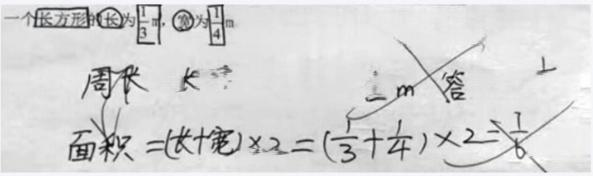 一个长方形的长为1/3m，宽为1/4m
周长 长 — m 答 1
面积=(长+宽)×2=(1/3+1/4)×2=7/6